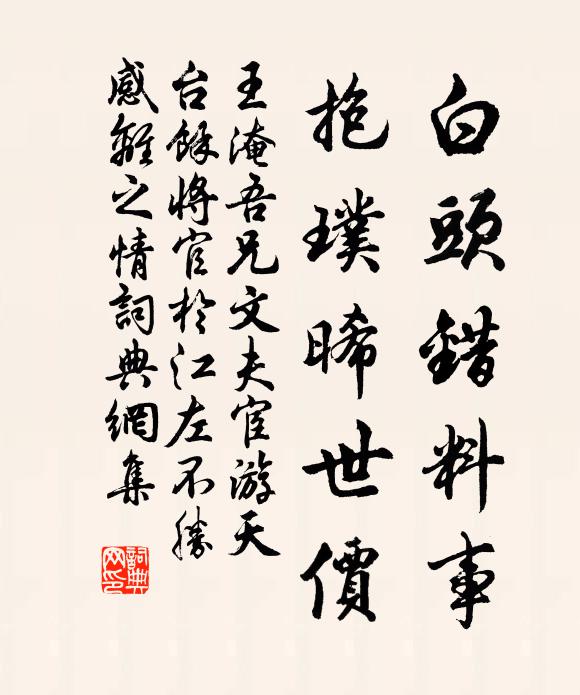 白頭錯料事
抱璞晞世價
王淹吾兄文夫宦游天
台餘將官於江左不勝
感離之情詞典網集
詞典网印